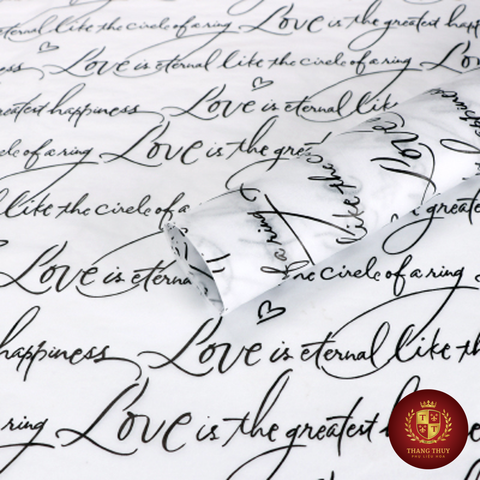 eternal like the circle of a ring Love is the greatest happ
ness Love is eternal like the circle of a ring Lov
greatest happiness Love is eternal lik
cle of a ring Love is the gre
like the circle of a
a ring
like the c
Love
greate
Love is eterna
he circle of a ring
happiness Love is eternal like th
ring Love is the greatest h
THANG THUY
PHỤ LIỆU HOA